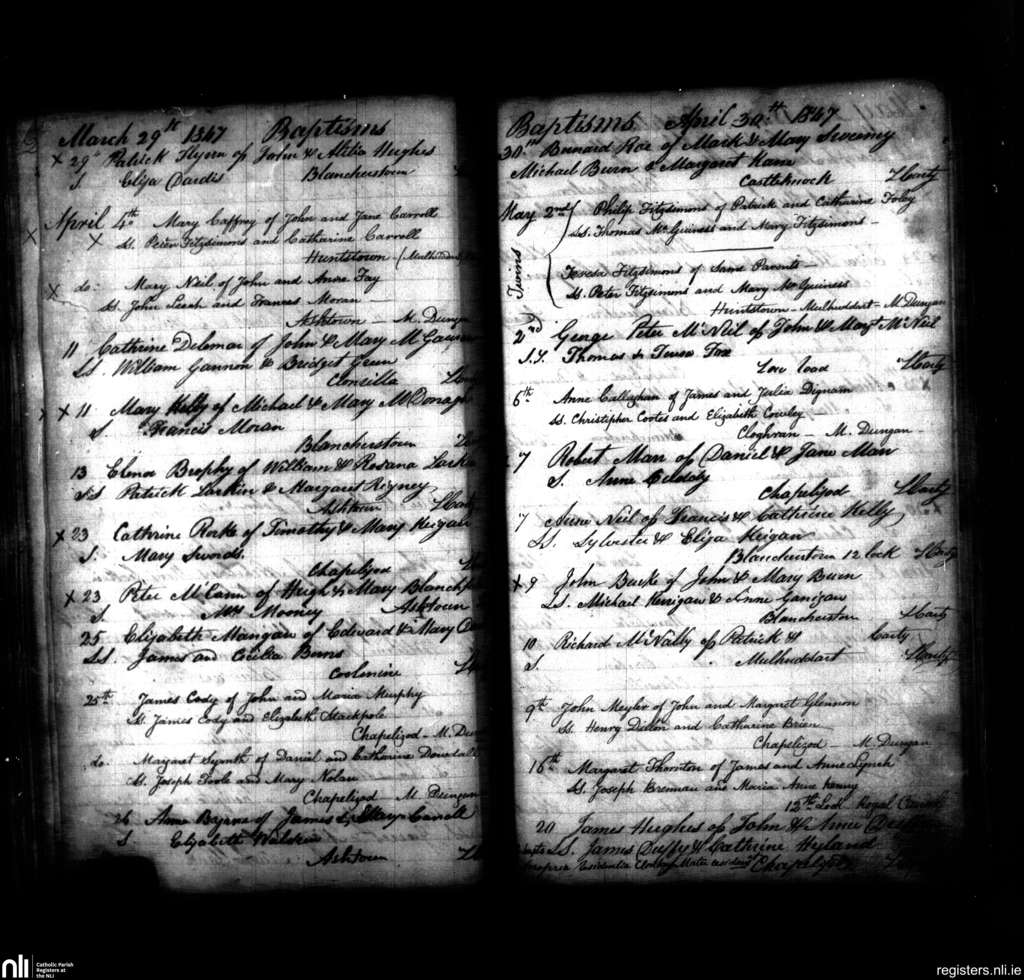 March 29th 1847 Baptisms
x 29th Patrick Flynn of John & Atilia Hughes
S. Eliza Dardis Blancherstown
April 4th Mary Caffrey of John and Jane Carroll
x Ss. Peter Fitzsimons and Catharine Carroll
Huntstown
x do. Mary Neil of John and Anne Fay
Ss. John Leech and Frances Moran
Ashtown — M. Dungan
11 Cathrine Delemar of John & Mary M
Ss. William Gannon & Bridget Green
Clonsilla
x 11 Mary Kelly of Michael & Mary McDonagh
S. Francis Moran
Blancherstown
13 Elenor Brophy of William & Rosana Larkin
Ss Patrick Larkin & Margaret Rigney
Ashtown
x 23 Cathrine Rorke of Timothy & Mary Keigan
S. Mary Swords.
Chapelizod
x 23 Peter McCann of Hugh & Mary
S. Mrs Mooney Ashtown
25 Elizabeth Mangan of Edward & Mary
Ss. James and Cicilia Burns
Coolmine
25th James Cody of John and Maria Murphy
Ss. James Cody and Elizabeth Stackpole
Chapelizod — M. Dungan
do. Margaret Smyth of Daniel and Catharine
Ss. Joseph Toole and Mary Nolan
Chapelizod M. Dungan
26 Anne Byrne of James & Mary Carroll
S Elizabeth
Ashtown
Baptisms April 30th 1847
30th Bernard Roe of Mark & Mary Sweeny
Michael Burn & Margaret Kane
Castleknock Harty
May 2nd Philip Fitzsimons of Patrick and Catharine Foley
Ss. Thomas McGuiness and Mary Fitzsimons —
Twins
Teresa Fitzsimons of Same Parents —
Ss. Peter Fitzsimons and Mary McGuiness
Huntstown — Mulhuddart — M. Dungan
2nd George Peter McNeil of John & Margt McNeil
S.S. Thomas & Teresa Fox
Low road Harty
6th Anne Callaghan of James and Julia Dignam
Ss. Christopher Coates and Elizabeth Cowley —
Cloghran — M. Dungan —
7 Robert Man of Daniel & Jane Man
S. Anne
Chapelizod Harty
7 Anne Neil of Francis & Cathrine Kelly
Ss. Sylvester & Eliza Keigan
Blancherstown 12 lock Harty
x 9 John Burke of John & Mary Burn
Ss. Michael Kerrigan & Anne Garrigan
Blancherston Harty
10 Richard McNally of Patrick & Carty
S. Mulhuddart Harty
9th John Meyler of John and Margaret Glennon
Ss. Henry Dillon and Catharine Brien
Chapelizod — M. Dungan
16th Margaret Thornton of James and Anne Lynch
Ss. Joseph Brennan and Maria Anne Kenny
12th Lock Royal Canal
20 James Hughes of John & Anne
Ss. James Duffy & Cathrine Hyland
Chapelizod
nli
Catholic Parish
Registers at
the NLI
registers.nli.ie